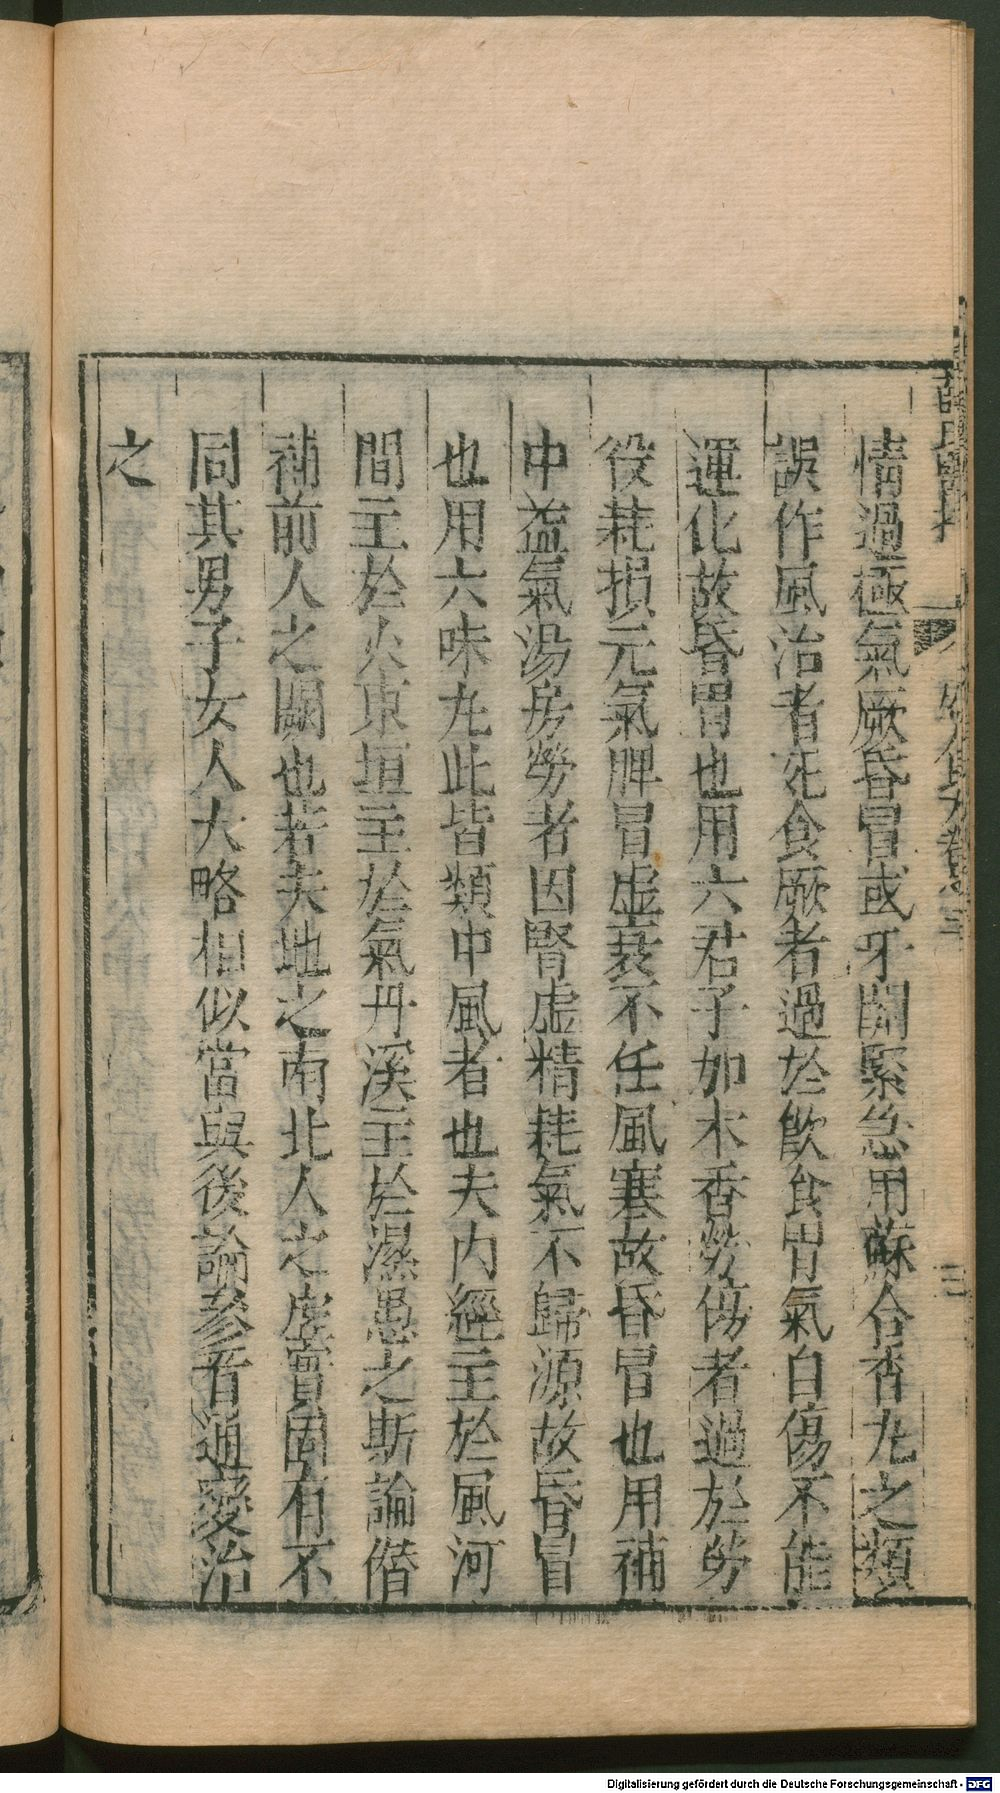 情過極氣厥昏冒或牙關緊急用蘇合香丸之類
誤作風治者死食厥者過於飲食胃氣自傷不能
運化故昏冒也用六君子加木香勞傷者過於勞
役耗損元氣脾胃虛衰不任風寒故昏冒也用補
中益氣湯房勞者因腎虛精耗氣不歸源故昏冒
也用六味丸此皆類中風者也夫內經主於風河
間主於火東垣主於氣丹溪主於濕愚之斯論僭
補前人之闕也若夫地之南北人之虛實固有不
同其男子女人大略相似當與後論參看通變治
之
Digitalisierung gefördert durch die Deutsche Forschungsgemeinschaft - DFG